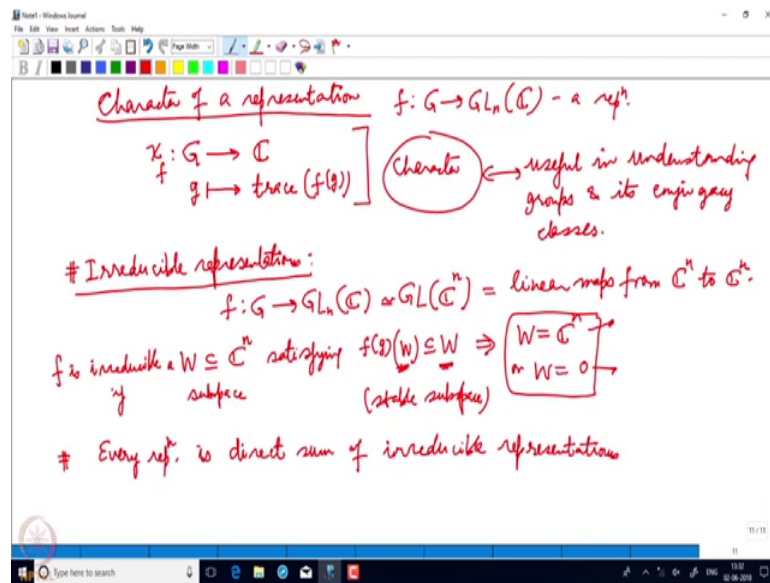 Note1 - Windows Journal
File Edit View Insert Actions Tools Help
Page Width
B I
Character of a representation f: G → GLₙ(ℂ) - a repⁿ.
χ_f : G → ℂ
g ↦ trace (f(g))
Character
↔ useful in understanding
groups & its conjugacy
classes.
# Irreducible representations:
f: G → GLₙ(ℂ) or GL(ℂⁿ) = linear maps from ℂⁿ to ℂⁿ.
f is irreducible if W ⊆ ℂⁿ satisfying f(g)(W) ⊆ W ⇒ W = ℂⁿ
subspace (stable subspace) or W = 0
# Every repⁿ. is direct sum of irreducible representations
11 / 11
11
Type here to search
ENG
13:32
02-06-2018